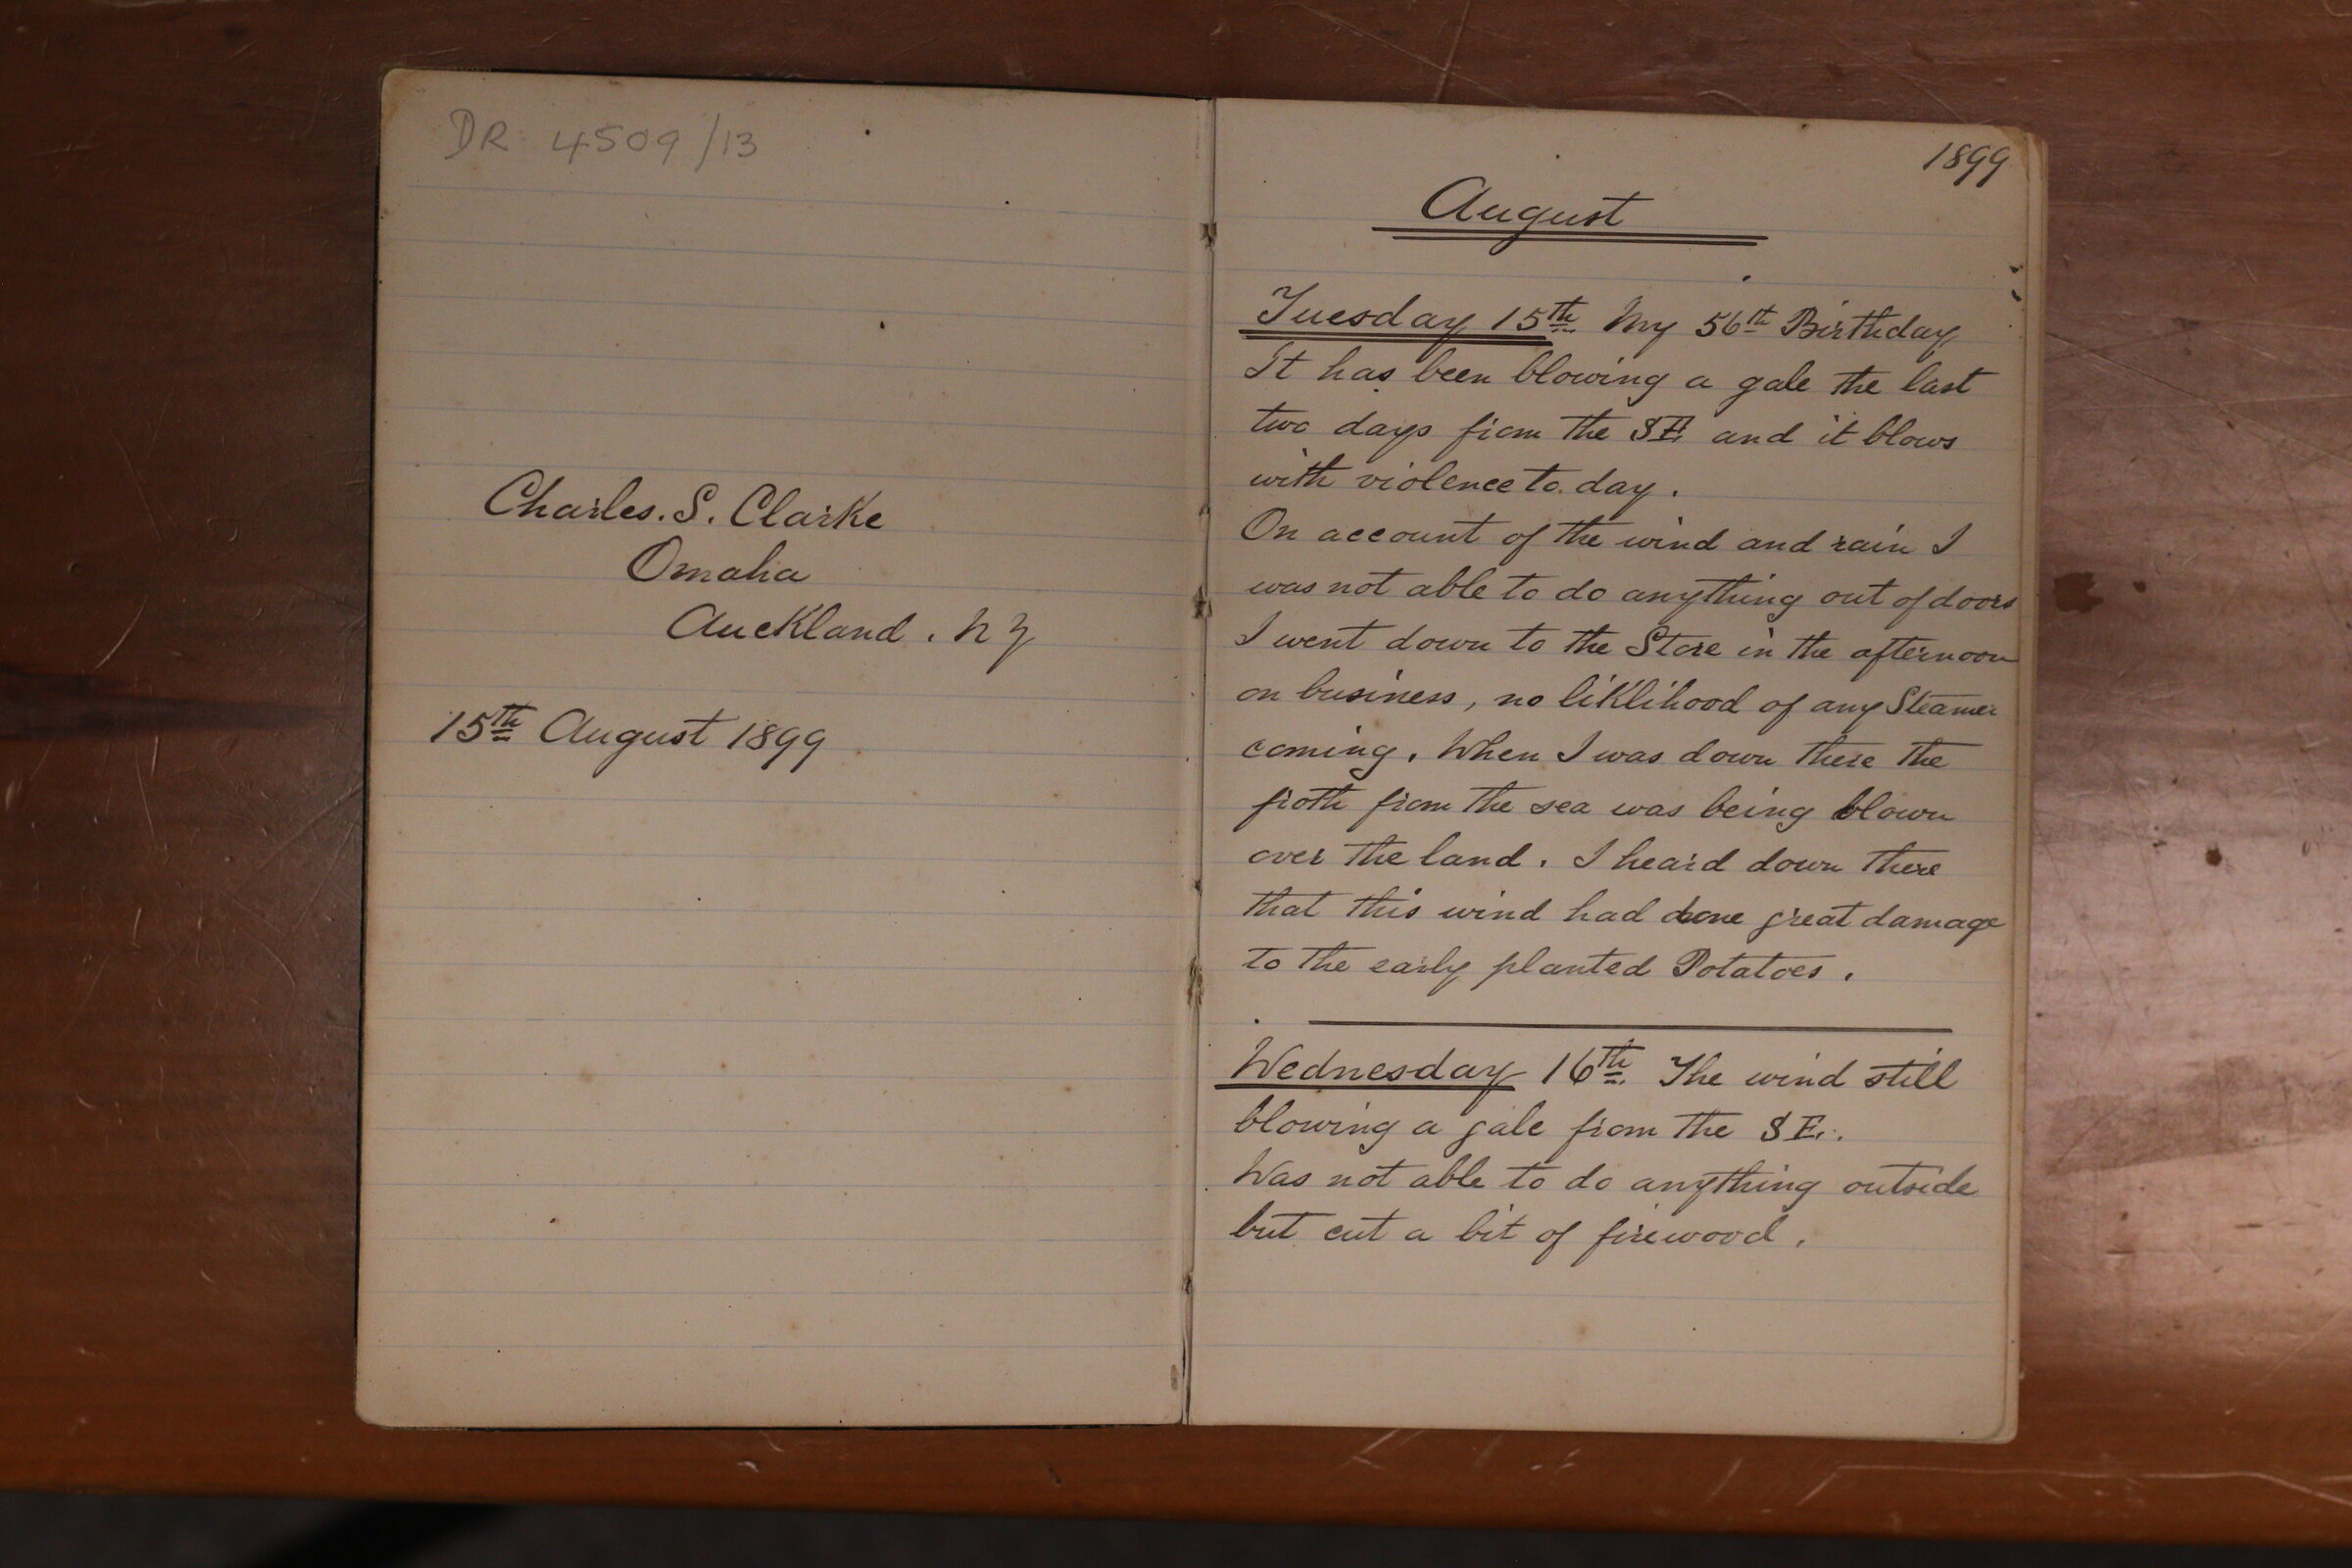 DR 4509/13
Charles. S. Clarke
Omaha
Auckland. NZ
15th August 1899
1899
August
Tuesday 15th My 56th Birthday,
It has been blowing a gale the last
two days from the SE and it blows
with violence to day.
On account of the wind and rain I
was not able to do anything out of doors
I went down to the Store in the afternoon
on business, no liklihood of any Steamer
coming. When I was down there the
froth from the sea was being blown
over the land. I heard down there
that this wind had done great damage
to the early planted Potatoes.
Wednesday 16th. The wind still
blowing a gale from the SE.
Was not able to do anything outside
but cut a bit of firewood.